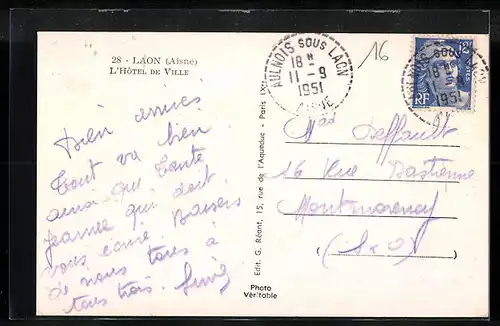 28 - LAON (Aisne)
L'HÔTEL DE VILLE
Bien arrivés
Tout va bien
ainsi que Tante
Jeanne qui doit
vous écrire. Baisers
de nous tous à
tous trois.
AULNOIS SOUS LAON
18 H
11 - 9
1951
AISNE
16
RF
AULNOIS SOUS LAON
18 H
1951
Edit. G. Réant, 15, rue de l'Aqueduc - Paris (X
Photo
Véritable
Deffault
16 Rue Bastienne
Montmorency
(S & O)